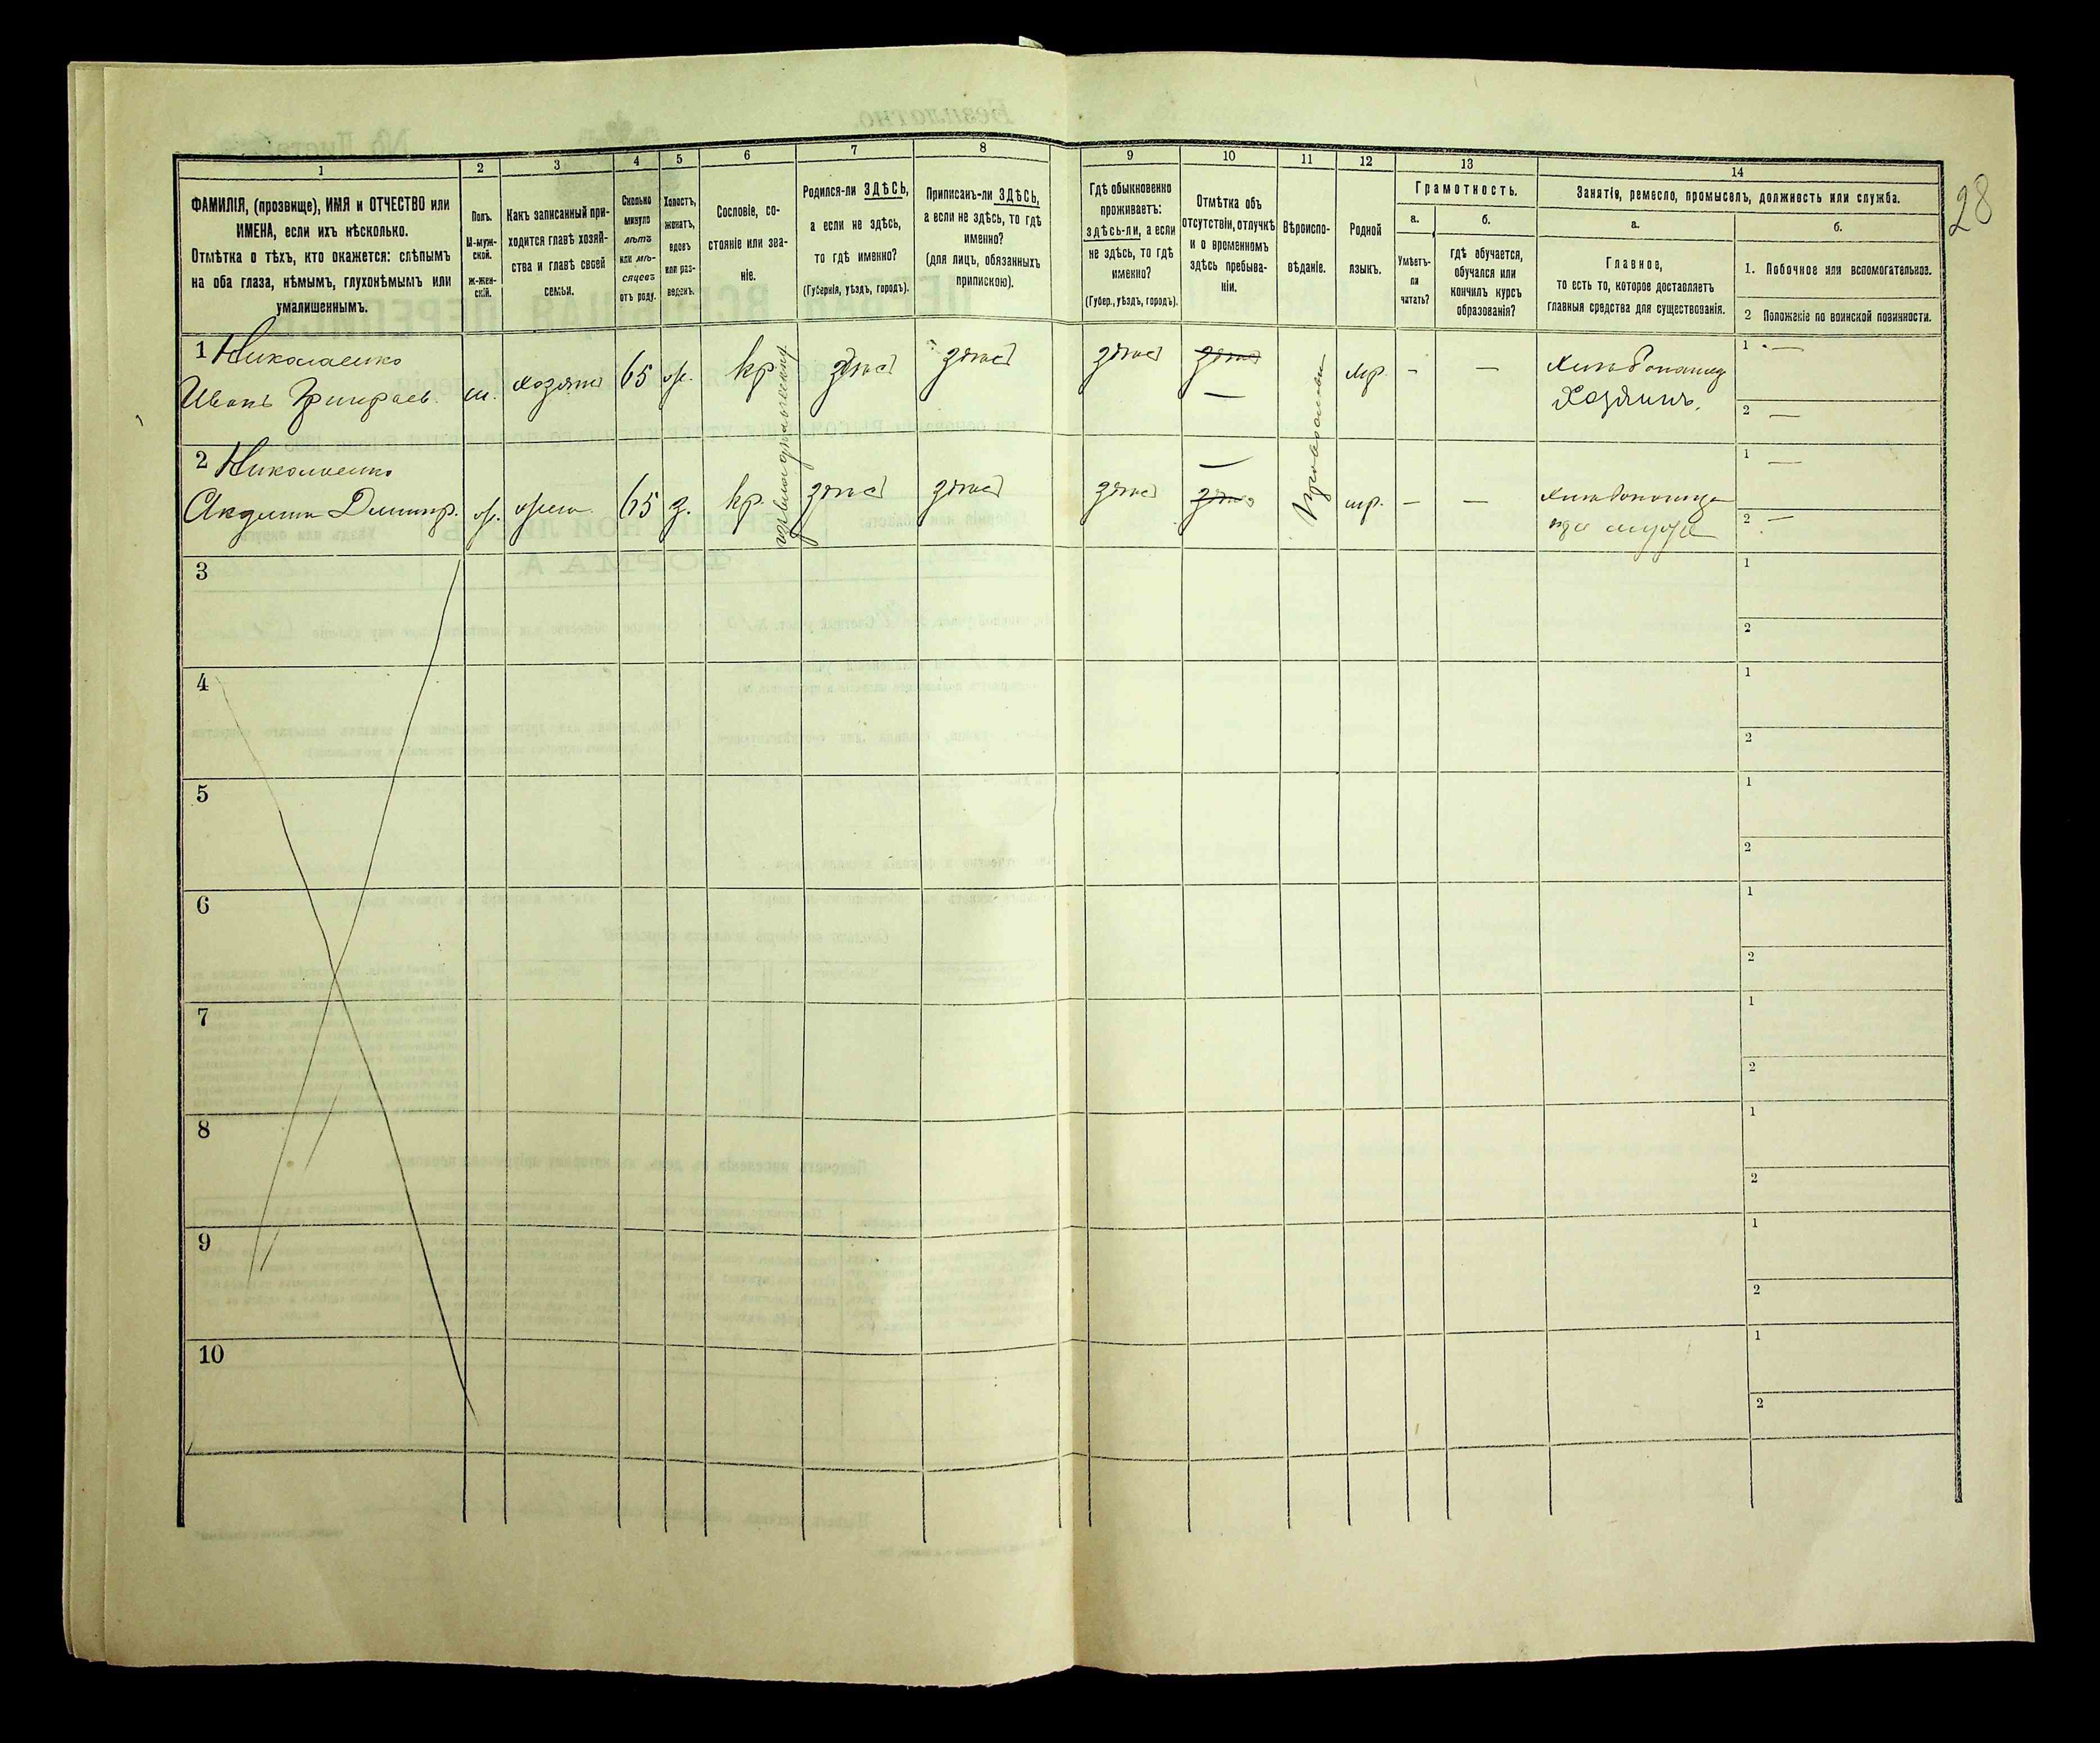 28
1
2
3
4
5
6
7
8
9
10
11
12
13
14
ФАМИЛІЯ, (прозвище), ИМЯ и ОТЧЕСТВО или
ИМЕНА, если ихъ нѣсколько.
Отмѣтка о тѣхъ, кто окажется: слѣпымъ
на оба глаза, нѣмымъ, глухонѣмымъ или
умалишеннымъ.
Полъ.
М-муж-
ской.
ж-жен-
скій.
Какъ записанный при-
ходится главѣ хозяй-
ства и главѣ своей
семьи.
Сколько
минуло
лѣтъ
или мѣ-
сяцевъ
отъ роду.
Холостъ,
женатъ,
вдовъ
или раз-
веденъ.
Сословіе, со-
стояніе или зва-
ніе.
Родился-ли ЗДѢСЬ,
а если не здѣсь,
то гдѣ именно?
(Губернія, уѣздъ, городъ).
Приписанъ-ли ЗДѢСЬ,
а если не здѣсь, то гдѣ
именно?
(для лицъ, обязанныхъ
припискою).
Гдѣ обыкновенно
проживаетъ:
здѣсь-ли, а если
не здѣсь, то гдѣ
именно?
(Губер., уѣздъ, городъ).
Отмѣтка объ
отсутствіи, отлучкѣ
и о временномъ
здѣсь пребыва-
ніи.
Вѣроиспо-
вѣданіе.
Родной
языкъ.
Грамотность.
а.
Умѣетъ-
ли
читать?
б.
гдѣ обучается,
обучался или
кончилъ курсъ
образованія?
Занятія, ремесло, промыселъ, должность или служба.
а.
Главное,
то есть то, которое доставляетъ
главныя средства для существованія.
б.
1. Побочное или вспомогательное.
2 Положеніе по воинской повинности.
1 Николаенко
Иванъ Григорьев. м. хозяинъ 65 ж. кр. здѣсь здѣсь здѣсь здѣсь — мр. - — Хлѣбопашец
Хозяинъ.
1 —
2 —
Православн.
2 Николаенко
Димитр. ж. жена 65 з. кр. здѣсь здѣсь здѣсь — здѣсь мр. - —
при мужѣ
1 —
2 —
3
1
2
4
1
2
5
1
2
6
1
2
7
1
2
8
1
2
9
1
2
10
1
2